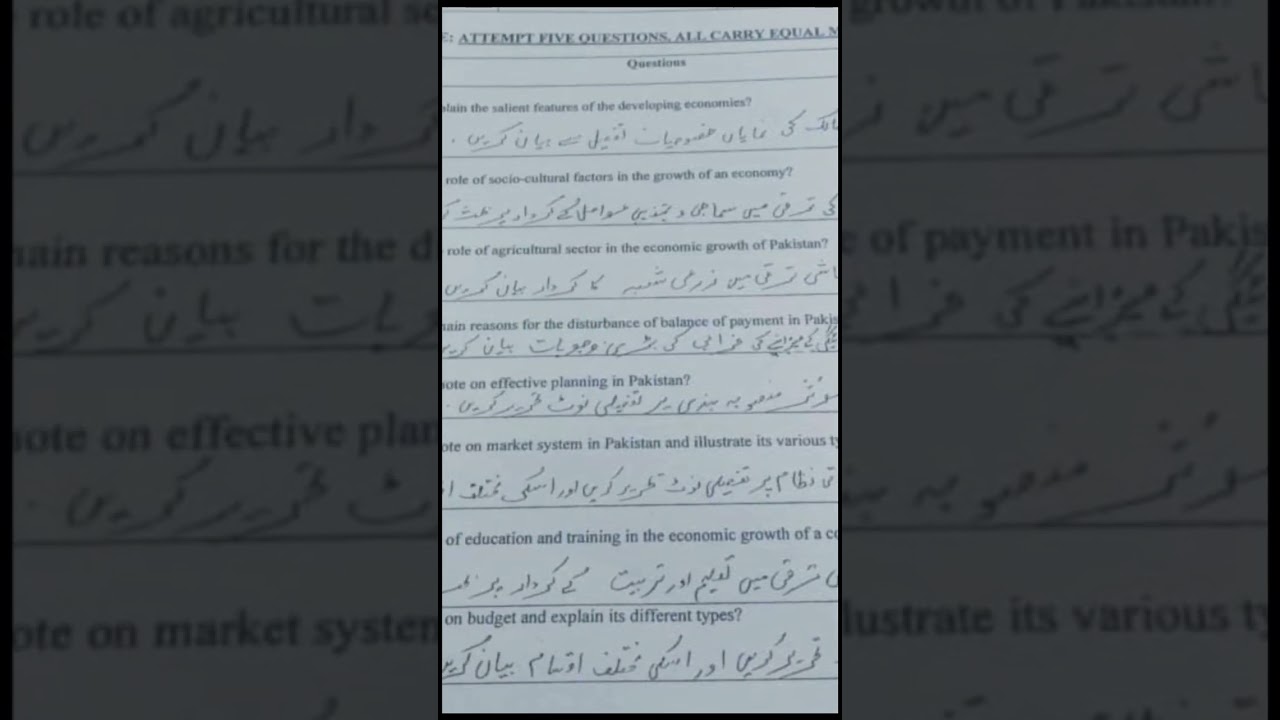 E: ATTEMPT FIVE QUESTIONS, ALL CARRY EQUAL M
Questions
lain the salient features of the developing economies?
کی نمایاں خصوصیات تفصیل سے بیان کریں ۔
role of socio-cultural factors in the growth of an economy?
کی ترقی میں سماجی و تہذیبی عوامل کے کردار پر بحث ک
role of agricultural sector in the economic growth of Pakistan?
اشی ترقی میں زرعی شعبہ کا کردار بیان کریں
ain reasons for the disturbance of balance of payment in Pakis
کے میزانیے کی خرابی کی بڑی وجوہات بیان کریں
ote on effective planning in Pakistan?
منصوبہ بندی پر تفصیلی نوٹ تحریر کریں ۔
ote on market system in Pakistan and illustrate its various ty
نظام پر تفصیلی نوٹ تحریر کریں اور اسکی مختلف ا
of education and training in the economic growth of a co
ترقی میں تعلیم اور تربیت کے کردار پر
on budget and explain its different types?
تحریر کریں اور اسکی مختلف اقسام بیان کریں